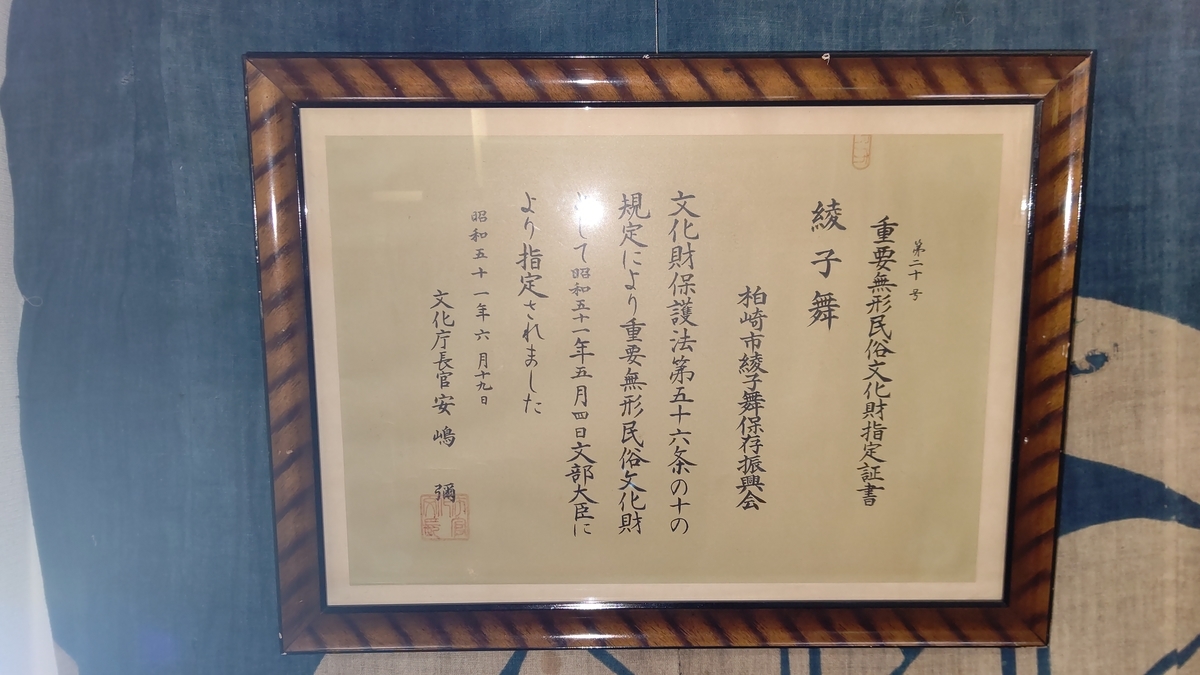 第二十号
重要無形民俗文化財指定証書
綾子舞
柏崎市綾子舞保存振興会
文化財保護法第五十六条の十の
規定により重要無形民俗文化財
として昭和五十一年五月四日文部大臣に
より指定されました
昭和五十一年六月十九日
文化庁長官安嶋彌